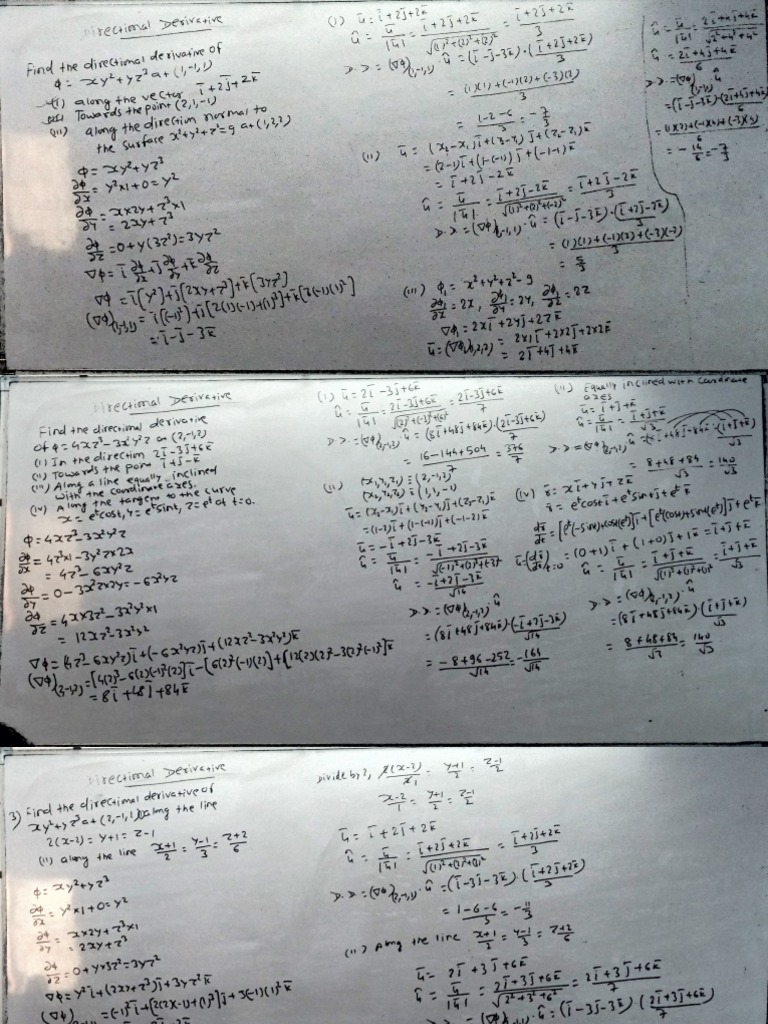 Directional Derivative
Find the directional derivative of
ϕ = xy²+yz³ at (1,-1,1)
(i) along the vector i̅+2j̅+2k̅
(ii) Towards the point (2,1,-1)
(iii) along the direction normal to
the surface x²+y²+z²=9 at (1,2,2)
ϕ = xy²+yz³
∂ϕ/∂x = y²×1+0 = y²
∂ϕ/∂y = x×2y+z³×1
= 2xy+z³
∂ϕ/∂z = 0+y(3z²) = 3yz²
∇ϕ = i̅ ∂ϕ/∂x + j̅ ∂ϕ/∂y + k̅ ∂ϕ/∂z
∇ϕ = i̅[y²]+j̅[2xy+z³]+k̅[3yz²]
(∇ϕ)(1,-1,1) = i̅[(-1)²]+j̅[2(1)(-1)+(1)³]+k̅[3(-1)(1)²]
= i̅-j̅-3k̅
(i) u̅ = i̅+2j̅+2k̅
û = u̅/|u̅| = i̅+2j̅+2k̅/√(1)²+(2)²+(2)² = i̅+2j̅+2k̅/3
D.D = (∇ϕ)(1,-1,1)·û = (i̅-j̅-3k̅)·(i̅+2j̅+2k̅/3)
= (1)(1)+(-1)(2)+(-3)(2)/3
= 1-2-6/3 = -7/3
(ii) u̅ = (x₂-x₁)i̅+(y₂-y₁)j̅+(z₂-z₁)k̅
= (2-1)i̅+(1-(-1))j̅+(-1-1)k̅
= i̅+2j̅-2k̅
û = u̅/|u̅| = i̅+2j̅-2k̅/√(1)²+(2)²+(-2)² = i̅+2j̅-2k̅/3
D.D = (∇ϕ)(1,-1,1)·û = (i̅-j̅-3k̅)·(i̅+2j̅-2k̅/3)
= (1)(1)+(-1)(2)+(-3)(-2)/3
= 5/3
(iii) ϕ₁ = x²+y²+z²-9
∂ϕ₁/∂x = 2x, ∂ϕ₁/∂y = 2y, ∂ϕ₁/∂z = 2z
∇ϕ₁ = 2xi̅+2yj̅+2zk̅
u̅ = (∇ϕ₁)(1,2,2) = 2×1i̅+2×2j̅+2×2k̅
= 2i̅+4j̅+4k̅
û = u̅/|u̅| = 2i̅+4j̅+4k̅/√2²+4²+4²
û = 2i̅+4j̅+4k̅/6
D.D = (∇ϕ)(1,-1,1)·û
= (i̅-j̅-3k̅)·(2i̅+4j̅+4k̅)/6
= (1×2)+(-1×4)+(-3×4)/6
= -14/6 = -7/3
Directional Derivative
Find the directional derivative
of ϕ = 4xz³-3x²y²z at (2,-1,2)
(i) In the direction 2i̅-3j̅+6k̅
(ii) Towards the point i̅+j̅-k̅
(iii) Along a line equally inclined
with the coordinate axes.
(iv) Along the tangent to the curve
x = eᵗcost, y = eᵗsint, z = eᵗ at t=0.
ϕ = 4xz³-3x²y²z
∂ϕ/∂x = 4z³×1-3y²z×2x
= 4z³-6xy²z
∂ϕ/∂y = 0-3x²z×2y = -6x²yz
∂ϕ/∂z = 4x×3z²-3x²y²×1
= 12xz²-3x²y²
∇ϕ = (4z³-6xy²z)i̅+(-6x²yz)j̅+(12xz²-3x²y²)k̅
(∇ϕ)(2,-1,2) = [4(2)³-6(2)(-1)²(2)]i̅-[6(2)²(-1)(2)]+[12(2)(2)²-3(2)²(-1)²]k̅
= 8i̅+48j̅+84k̅
(i) u̅ = 2i̅-3j̅+6k̅
û = u̅/|u̅| = 2i̅-3j̅+6k̅/√(2)²+(-3)²+(6)² = 2i̅-3j̅+6k̅/7
D.D = (∇ϕ)(2,-1,2)·û = (8i̅+48j̅+84k̅)·(2i̅-3j̅+6k̅/7)
= 16-144+504/7 = 376/7
(ii) (x₁,y₁,z₁) = (2,-1,2)
(x₂,y₂,z₂) = (1,1,-1)
u̅ = (x₂-x₁)i̅+(y₂-y₁)j̅+(z₂-z₁)k̅
= (1-2)i̅+(1-(-1))j̅+(-1-2)k̅
u̅ = -i̅+2j̅-3k̅
û = u̅/|u̅| = -i̅+2j̅-3k̅/√(-1)²+(2)²+(-3)²
û = -i̅+2j̅-3k̅/√14
D.D = (∇ϕ)(2,-1,2)·û
= (8i̅+48j̅+84k̅)·(-i̅+2j̅-3k̅/√14)
= -8+96-252/√14 = -164/√14
(ii) Equally inclined with coordinate
axes
u̅ = i̅+j̅+k̅
û = u̅/|u̅| = i̅+j̅+k̅/√3
D.D = (∇ϕ)(2,-1,2)·û = (8i̅+48j̅+84k̅)·(i̅+j̅+k̅)/√3
= 8+48+84/√3 = 140/√3
(iv) r̅ = xi̅+yj̅+zk̅
r̅ = eᵗcosti̅+eᵗsintj̅+eᵗk̅
dr̅/dt = [eᵗ(-sint)+cost(eᵗ)]i̅+[eᵗ(cost)+sint(eᵗ)]j̅+eᵗk̅
u̅ = (dr̅/dt)t=0 = (0+1)i̅+(1+0)j̅+1k̅ = i̅+j̅+k̅
û = u̅/|u̅| = i̅+j̅+k̅/√(1)²+(1)²+(1)² = i̅+j̅+k̅/√3
D.D = (∇ϕ)(2,-1,2)·û
= (8i̅+48j̅+84k̅)·(i̅+j̅+k̅)/√3
= 8+48+84/√3 = 140/√3
Directional Derivative
3) Find the directional derivative of
xy²+yz³ at (2,-1,1) along the line
2(x-2) = y+1 = z-1
(ii) along the line x+1/2 = y-1/3 = z+2/6
ϕ = xy²+yz³
∂ϕ/∂x = y²×1+0 = y²
∂ϕ/∂y = x×2y+z³×1
= 2xy+z³
∂ϕ/∂z = 0+y×3z² = 3yz²
∇ϕ = y²i̅+(2xy+z³)j̅+3yz²k̅
(∇ϕ) = (-1)²i̅+[2(2)(-1)+(1)³]j̅+3(-1)(1)²k̅
Divide by 2, 2(x-2)/2 = y+1/2 = z-1/2
x-2/1 = y+1/2 = z-1/2
u̅ = i̅+2j̅+2k̅
û = u̅/|u̅| = i̅+2j̅+2k̅/√(1)²+(2)²+(2)² = i̅+2j̅+2k̅/3
D.D = (∇ϕ)(2,-1,1)·û = (i̅-3j̅-3k̅)·(i̅+2j̅+2k̅/3)
= 1-6-6/3 = -11/3
(ii) Along the line x+1/2 = y-1/3 = z+2/6
u̅ = 2i̅+3j̅+6k̅
û = u̅/|u̅| = 2i̅+3j̅+6k̅/√2²+3²+6² = 2i̅+3j̅+6k̅/7
D.D = (∇ϕ)(2,-1,1)·û = (i̅-3j̅-3k̅)(2i̅+3j̅+6k̅/7)